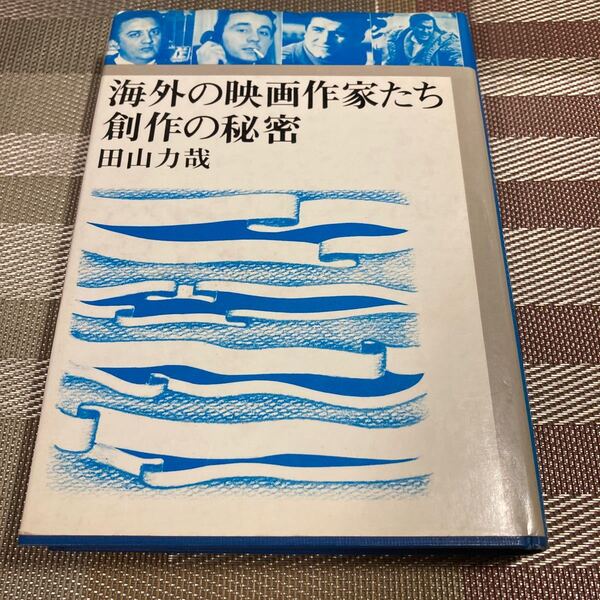 海外の映画作家たち
創作の秘密
田山力哉